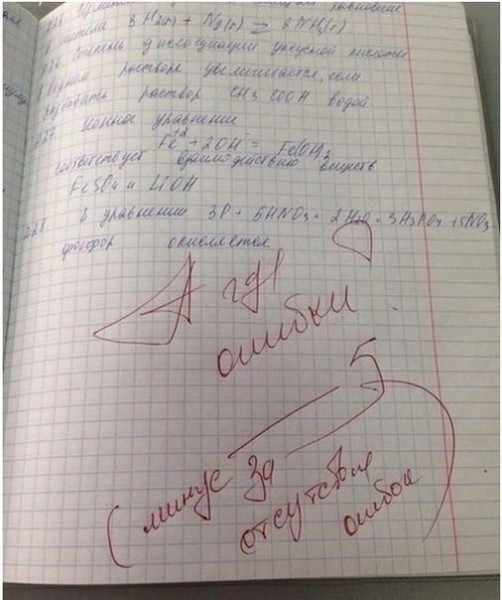 равновесие
системы 3H2(г) + N2(г) ⇄ 2NH3(г).
226 Степень диссоциации уксусной кислоты
в водном растворе увеличивается, если
разбавить раствор CH3COOH водой.
227. Ионное уравнение
Fe+2 + 2OH- = Fe(OH)2
соответствует взаимодействию веществ
FeSO4 и LiOH
228. В уравнении 3P + 5HNO3 + 2H2O = 3H3PO4 + 5NO
фосфор окисляется.
А где
ошибки?
5-
(минус за
отсутствие
ошибок)